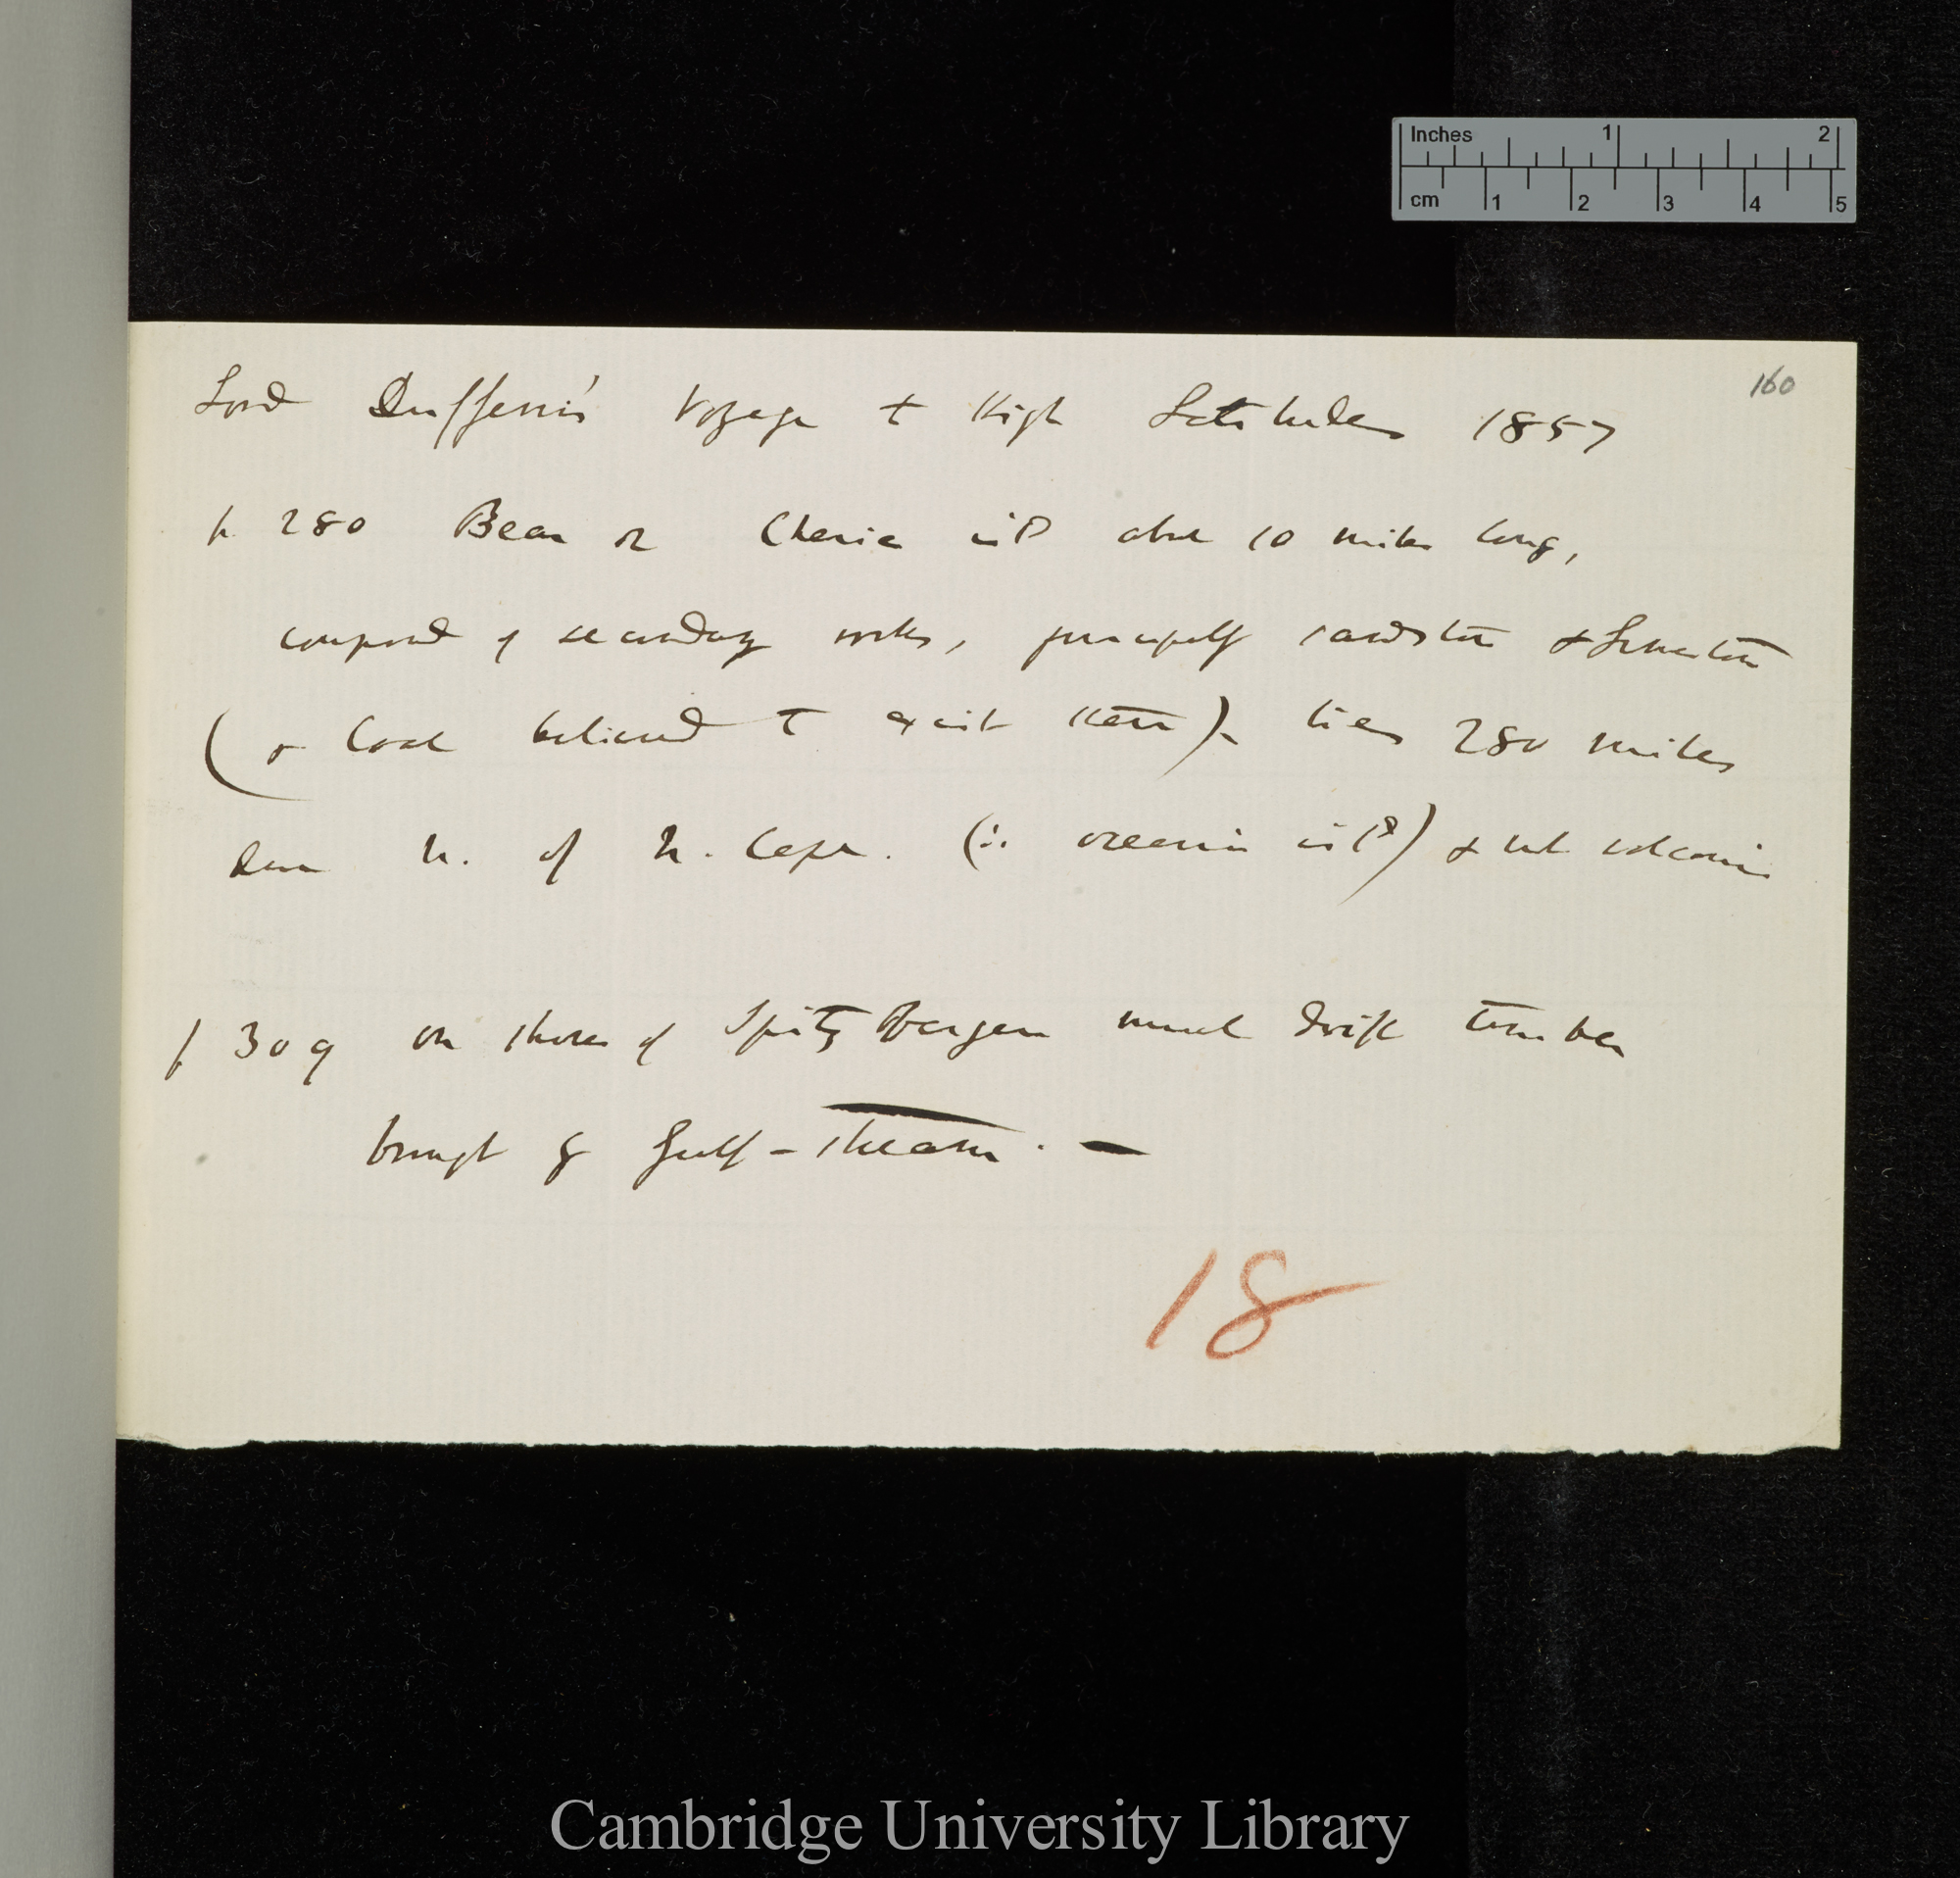 Inches 1 2
cm 1 2 3 4 5
160
Lord Dufferin's Voyage to High Latitudes 1857
p. 280 Bear or Cherie isld about 10 miles long,
composed of secondary rocks, principally sandstone & limestone
(& coal believed to exist there). lies 280 miles
due N. of N. Cape. (∴ oceanic isld) & not volcanic
p 309 on shores of Spitz Bergen much drift timber
brought by Gulf-stream. —
18
Cambridge University Library